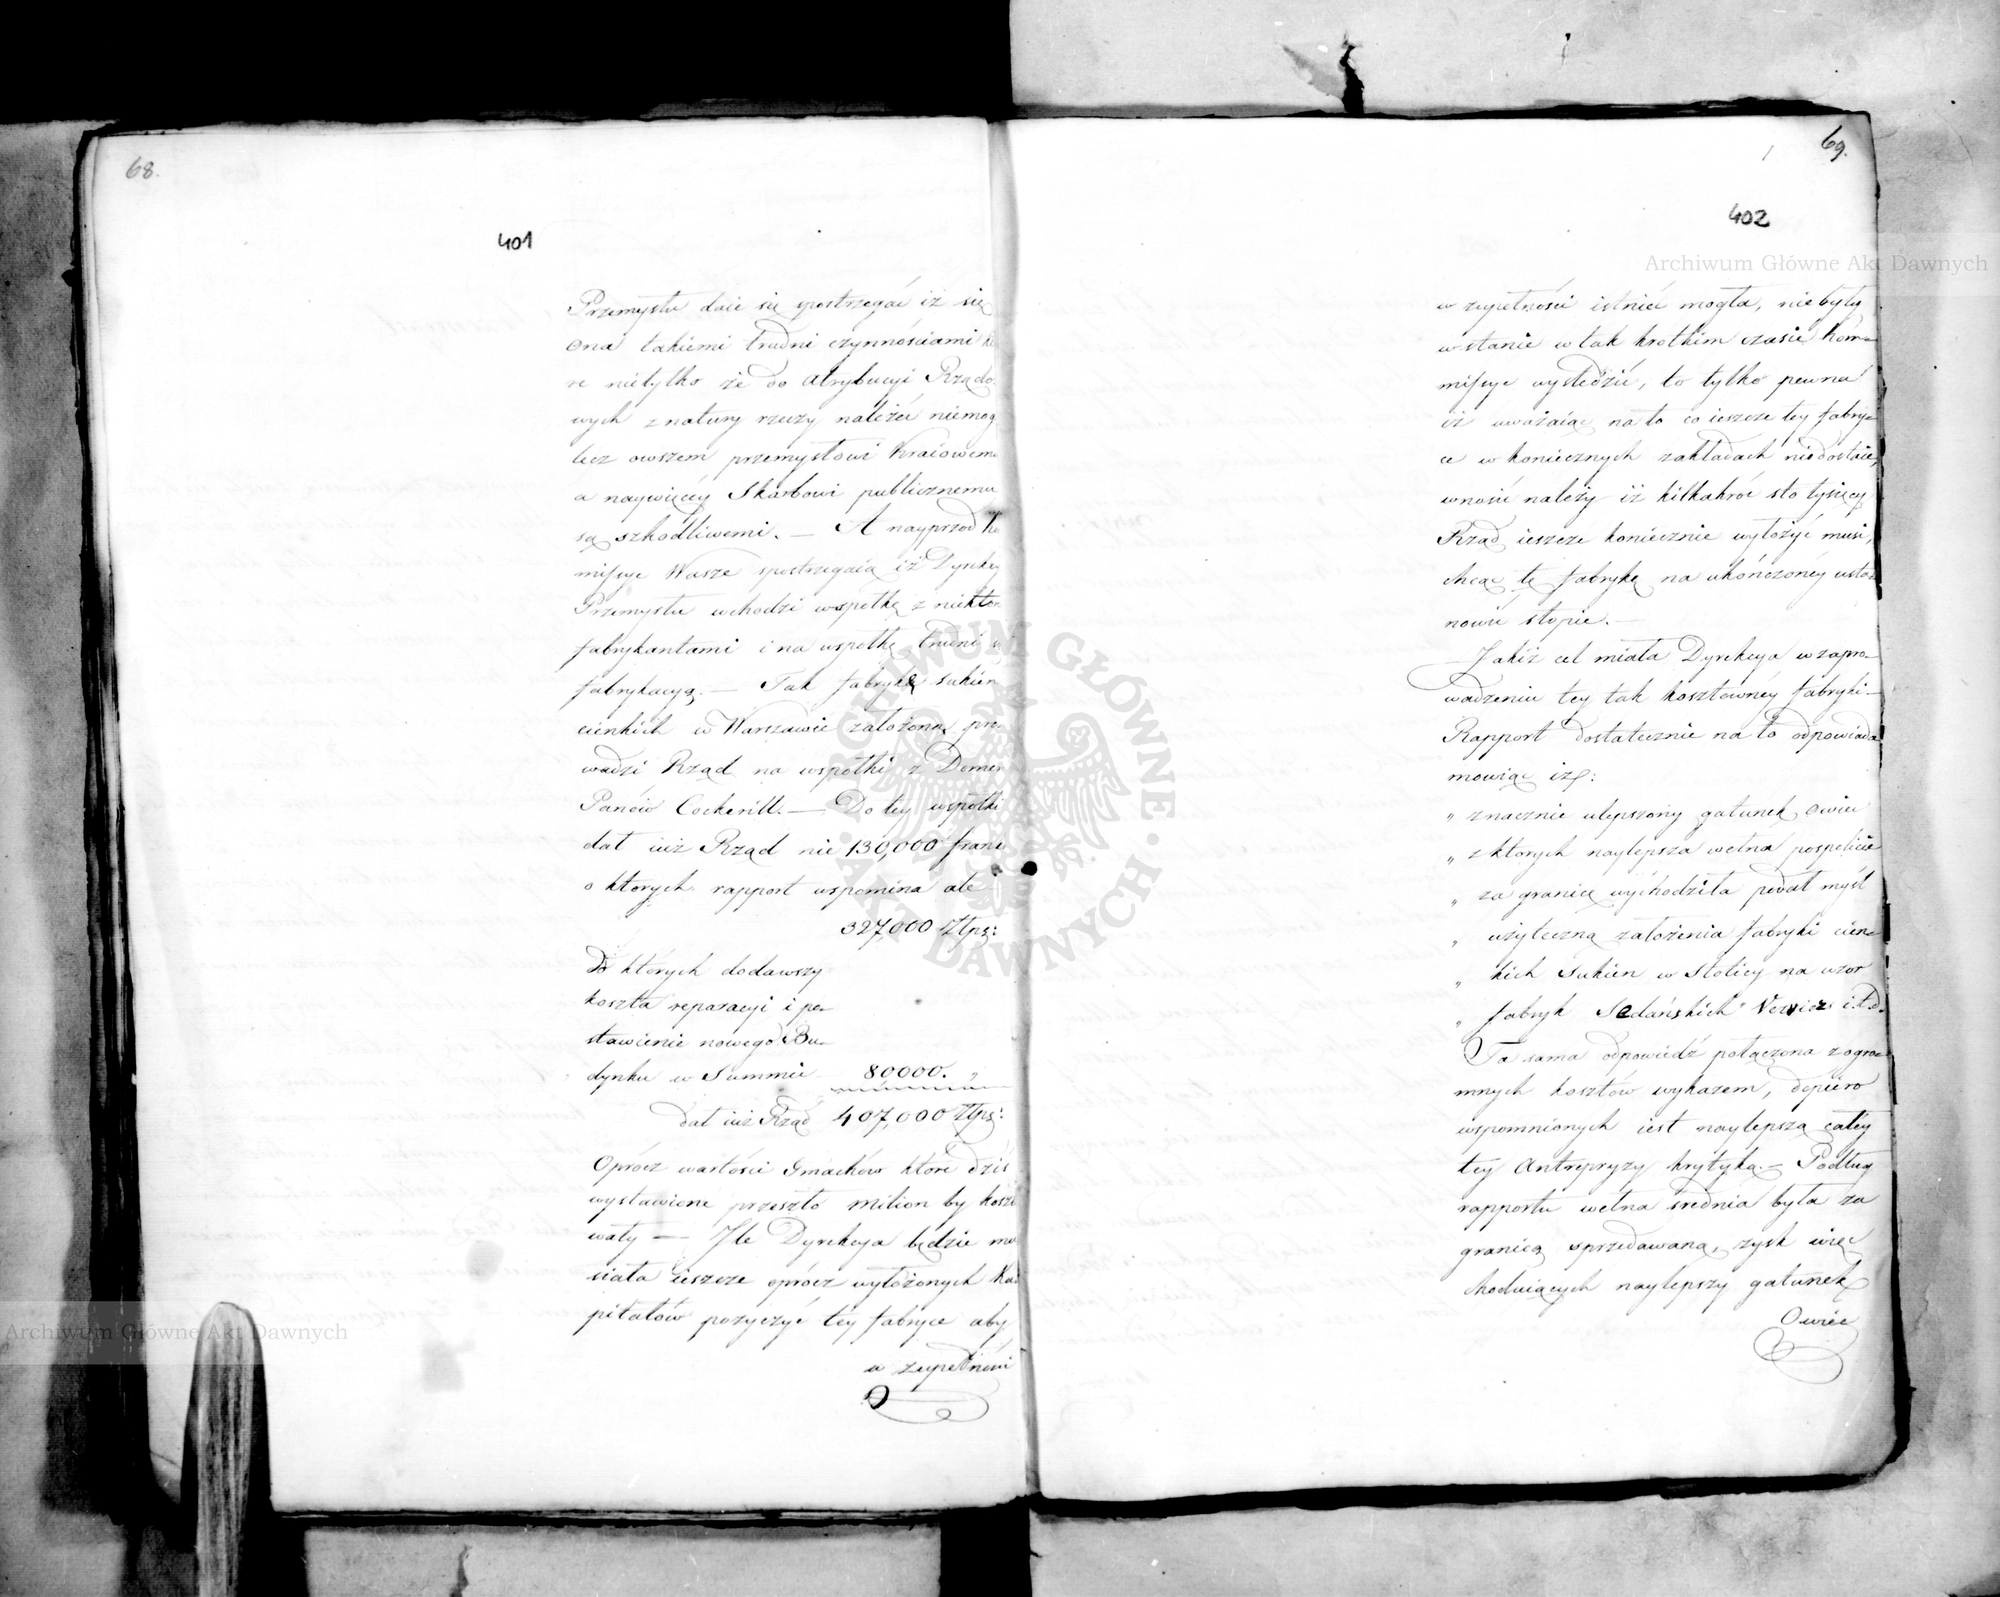 68.
401
Przemysłu daie się spostrzegać iż się
ona takiemi trudni czynnościami kt
re nietylko że do atrybucyi Rządo
wych z natury rzeczy należeć niemog
lecz owszem przemysłowi Kraiowemu
a naywięcéy Skarbowi publicznemu
są szkodliwemi. — A nayprzod Ko
missye Wasze spostrzegaią iż Dyrekcy
Przemysłu wchodzi w spółkę z niektor
fabrykantami i na wspołkę trudni
fabrykacyą. — Tak fabrykę sukien
cienkich w Warszawie założoną pro
wadzi Rząd na wspołki z Domem
Panów Cockerill. — Do tey wspołki
dał iuż Rząd nie 130,000 frank
o których rapport wspomina ale
327,000 Złps:
Do których dodawszy
koszta reparacyi i po-
stawienie nowego Bu-
dynku w Summie 80000. „
dał iuż Rząd 407,000 Złps:
Oprócz wartości Gmachów które dziś
wystawione przeszło milion by koszto
wały — Ile Dyrekcya będzie mu
siała ieszcze oprócz wyłożonych Ka
pitałów pożyczyć tey fabryce aby
w zupełności
69.
402
w zupełności istnieć mogła, niebyły
w stanie w tak krótkim czasie Kom-
missye wyśledzić, to tylko pewna
iż uważaiąc na to co ieszcze tey fabry-
ce w koniecznych zakładach niedostaie,
wnosić należy iż kilkakróć sto tysięcy
Rząd ieszcze koniecznie wyłożyć musi,
chcąc tę fabrykę na ukończonéy usta-
nowić stopie. —
Jakiż cel miała Dyrekcya w zapro-
wadzeniu tey tak kosztownéy fabryki —
Rapport dostatecznie na to odpowiada
mowiąc iż:
„ znacznie ulepszony gatunek Owiec
„ z ktorych naylepsza wełna pospolicie
„ za granicę wychodziła podał myśl
„ użyteczną założenia fabryki cien-
„ kich Sukien w Stolicy na wzor
„ fabryk Sedańskich Verviers i.t.d.
Ta sama odpowiedź połączona z ogro-
mnych kosztów wykazem, dopiero
wspomnionych iest naylepszą całéy
tey Antrepryzy krytyką. — Podług
rapportu wełna średnia była za
granicą sprzedawaną, zysk więc
hoduiących naylepszy gatunek
Owiec
Archiwum Główne Akt Dawnych
Archiwum Główne Akt Dawnych
ARCHIWUM GŁÓWNE AKT DAWNYCH